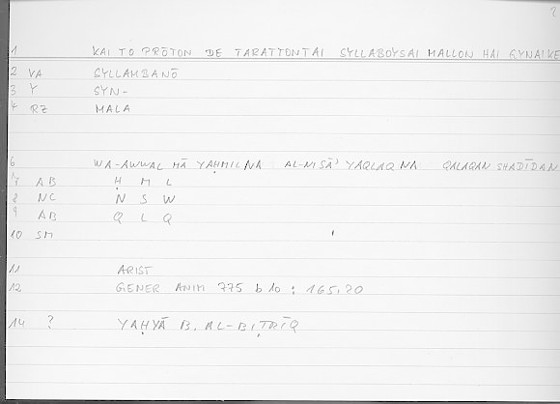 1 KAI TO PRŌTON DE TARATTONTAI SYLLABOYSAI MALLON HAI GYNAIKE
2 VA SYLLAMBANŌ
3 Y SYN-
4 RZ MALA
6 WA-AWWAL MĀ YAḤMILNA AL-NISĀʾ YAQLAQNA QALAQAN SHADĪDAN
7 AB Ḥ M L
8 NC N S W
9 AB Q L Q
10 SM
11 ARIST
12 GENER ANIM 775 b 10 : 165,20
14 ? YAḤYĀ B. AL-BIṬRĪQ